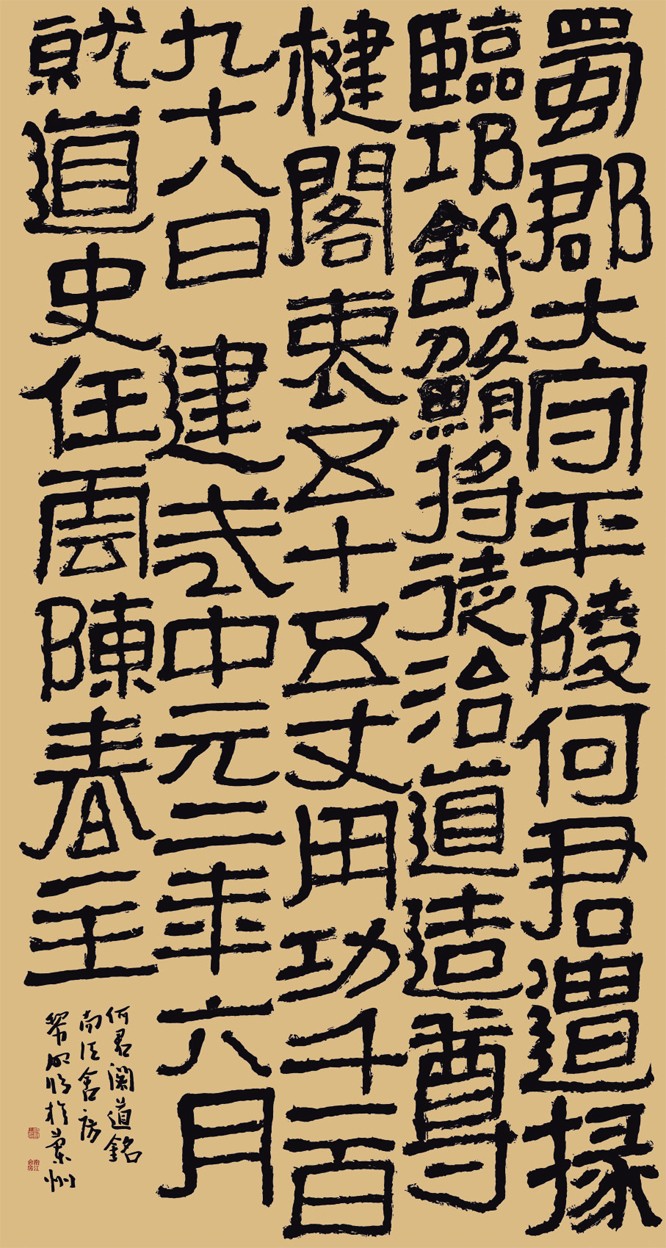 蜀郡大守平陵何君遣掾
臨邛舒鮪將徒治道造尊
楗閣袤五十五丈用功千一百
九十八日 建武中元二年六月
就道史任雲陳春主
何君閣道銘
南舍房
於蘭州